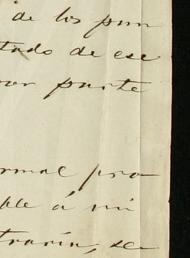 de los pun
tado de ese
por parte
ormal pro
ple á mi
traria, se